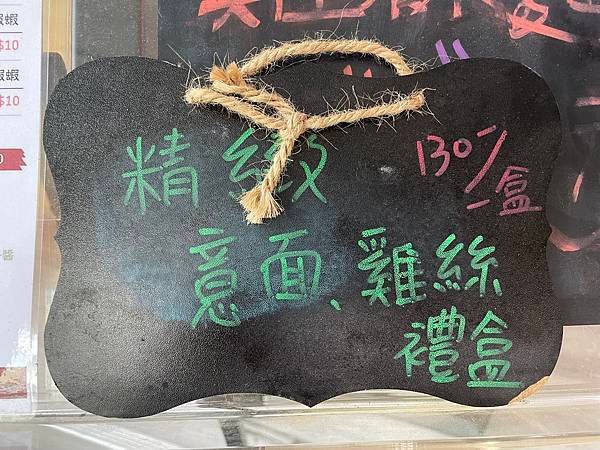 蝦
$10
蝦蝦
$10
精緻
130-/
一盒
意面、雞絲
禮盒
醬